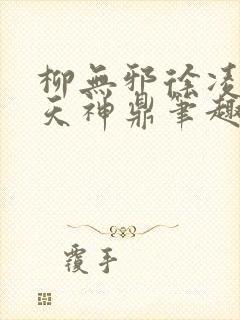 柳無邪徐凌
天神鼎筆趣
覆手